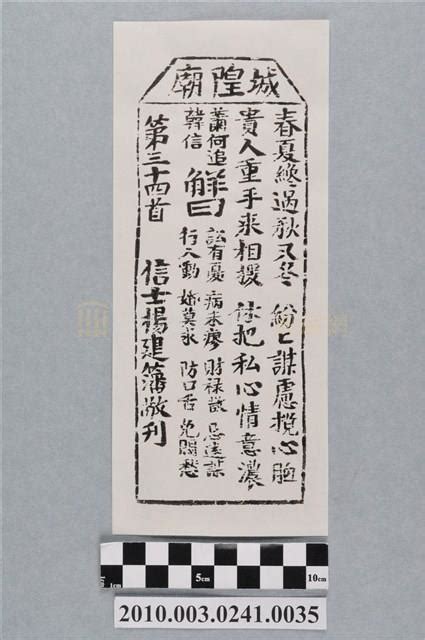 城隍廟
春夏纔過秋又冬 紛〻謀慮攪心胸
貴人垂手来相援 休把私心情意濃
蕭何追
韓信
解曰
訟有憂 病未瘳 財禄散 忌遠謀
行人動 婚莫求 防口舌 免閑愁
第三十四首 信士楊建藩敬刊
1cm 5cm 10cm
2010.003.0241.0035